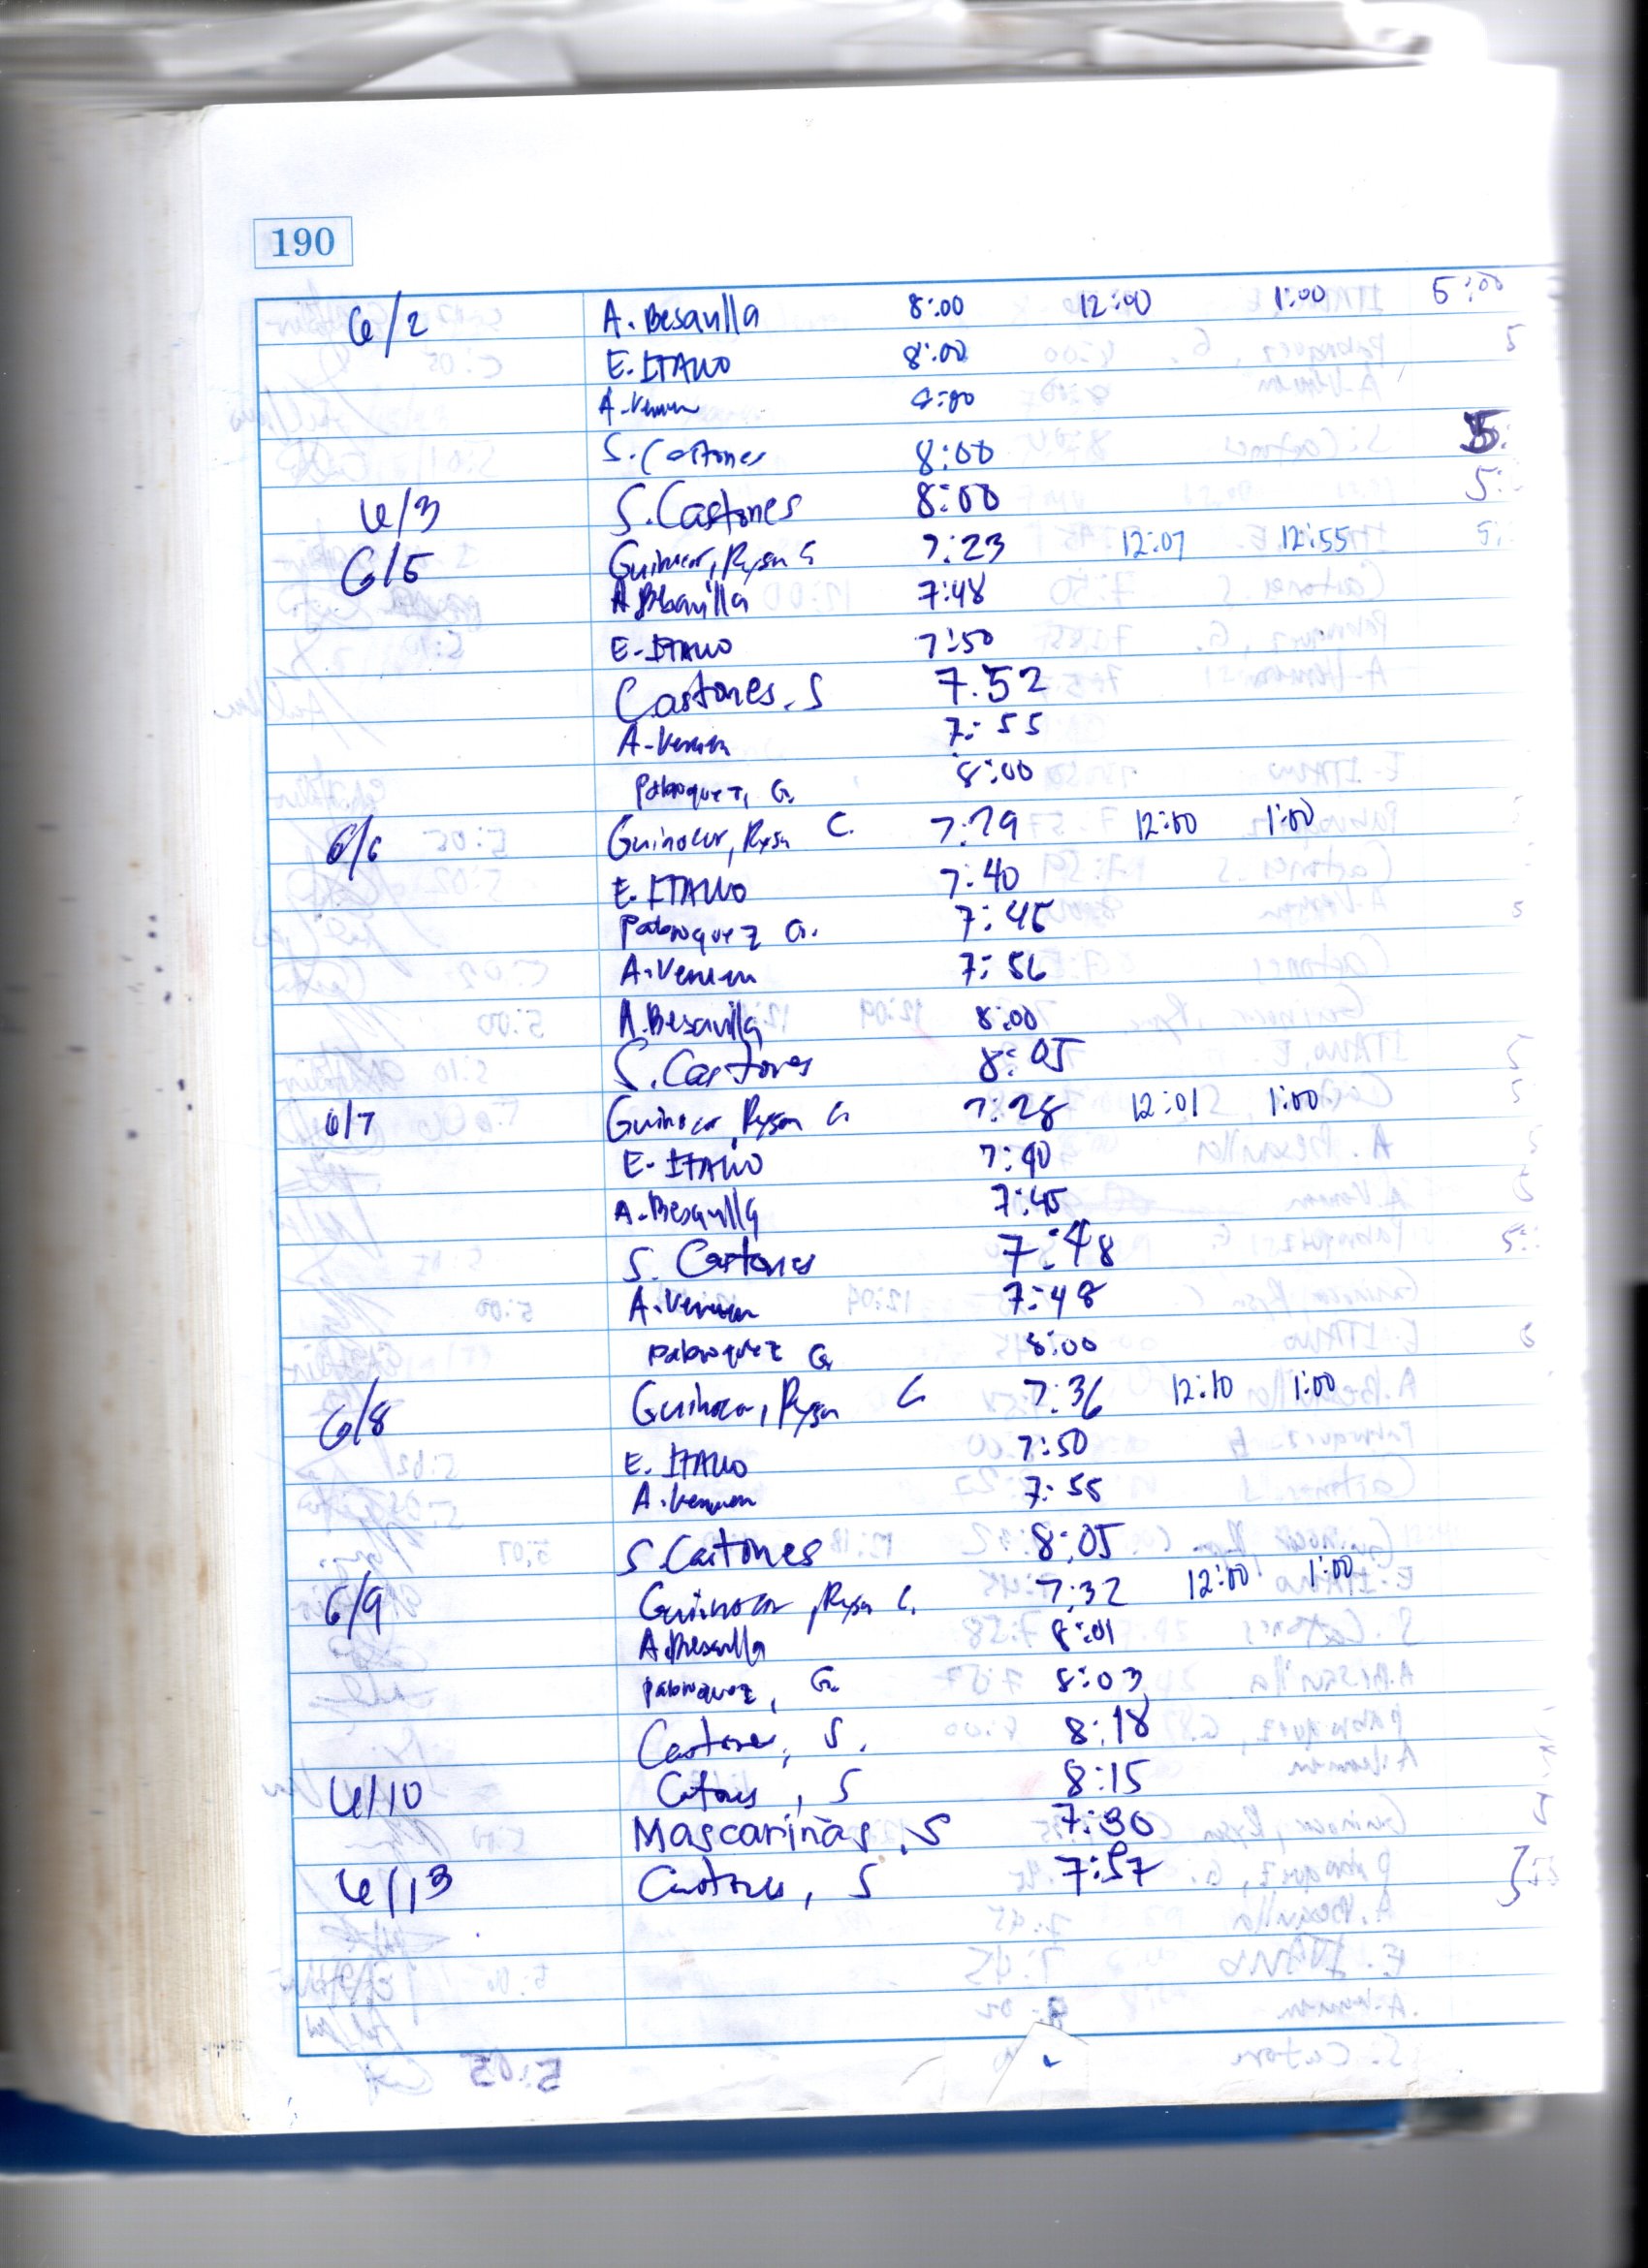 190
6/2 A. Besavilla 8:00 12:00 1:00 5:00
E. ITALIO 8:00 5
A. Veman 8:00
S. Castones 8:00 5:
6/3 S. Castones 8:00 5:
6/5 Guinocor, Rysa C 7:23 12:07 12:55 5:
A Besavilla 7:48
E. ITALIO 7:50
Castones, S 7.52
A. Veman 7:55
Pabroquez, G. 8:00
6/6 Guinocor, Rysa C. 7:29 12:00 1:00
E. ITALIO 7:40
Pabroquez G. 7:45 5
A. Veman 7:56
A. Besavilla 8:00
S. Castones 8:05
6/7 Guinocor, Rysa C. 7:28 12:01 1:00
E. ITALIO 7:40
A. Besavilla 7:45
S. Castones 7:48 5:
A. Veman 7:48
Pabroquez G. 8:00
6/8 Guinocor, Rysa C 7:36 12:10 1:00
E. ITALIO 7:50
A. Veman 7:55
S. Castones 8:05
6/9 Guinocor, Rysa C. 7:32 12:00 1:00
A. Besavilla 8:01
Pabroquez, G. 8:03
Castones, S. 8:18
6/10 Castones, S 8:15
Mascariñas, S 7:30
6/13 Castones, S 7:57